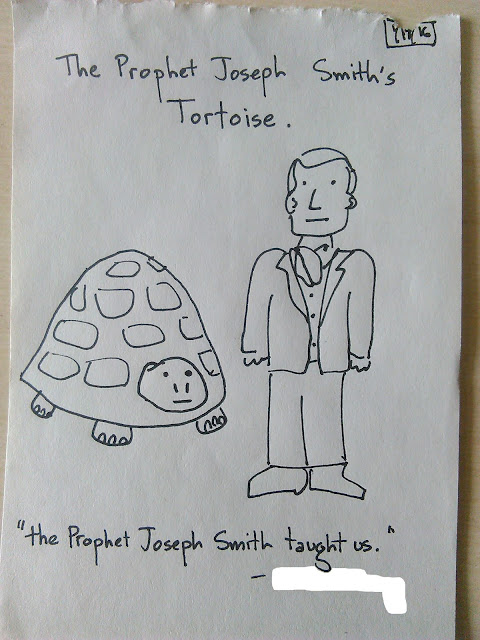 The Prophet Joseph Smith's
Tortoise.
"the Prophet Joseph Smith taught us."
-